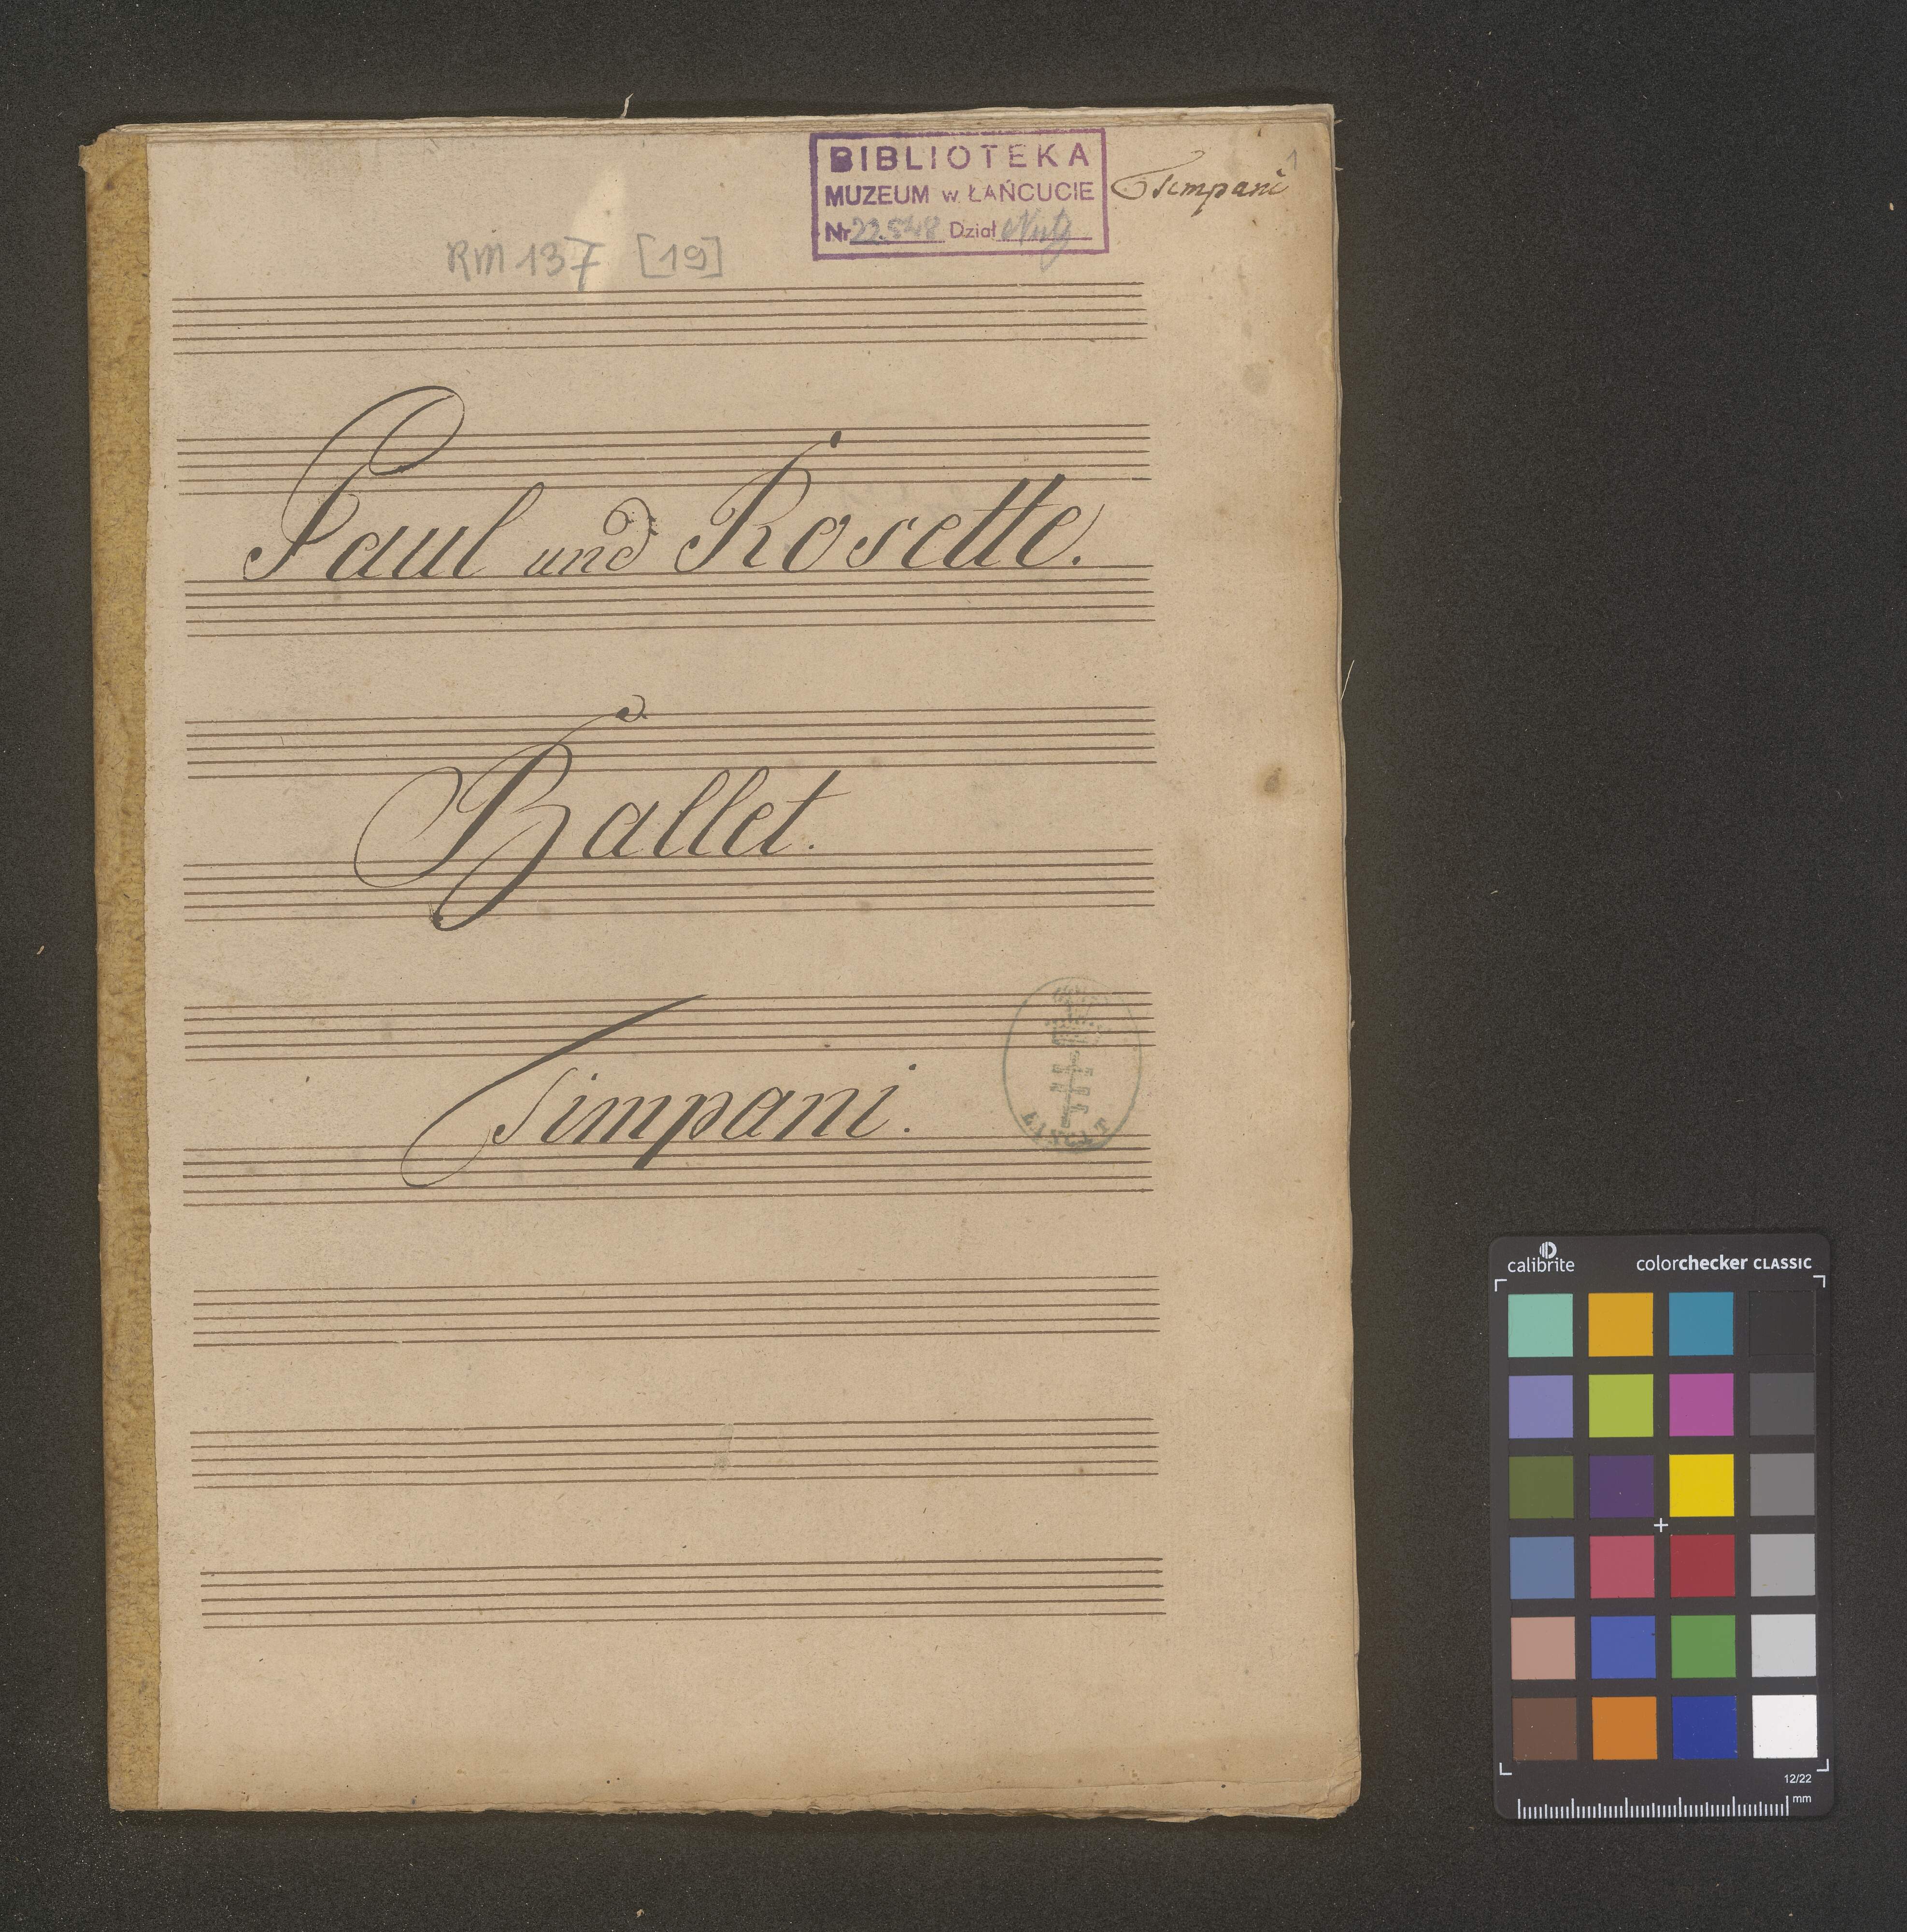 BIBLIOTEKA
MUZEUM w ŁAŃCUCIE
Nr 22.548 Dział Nuty
Timpani
1
RM 137 [19]
Paul und Rosette.
Ballet.
Timpani.
ŁAŃCUT
calibrite
colorchecker CLASSIC
12/22
mm